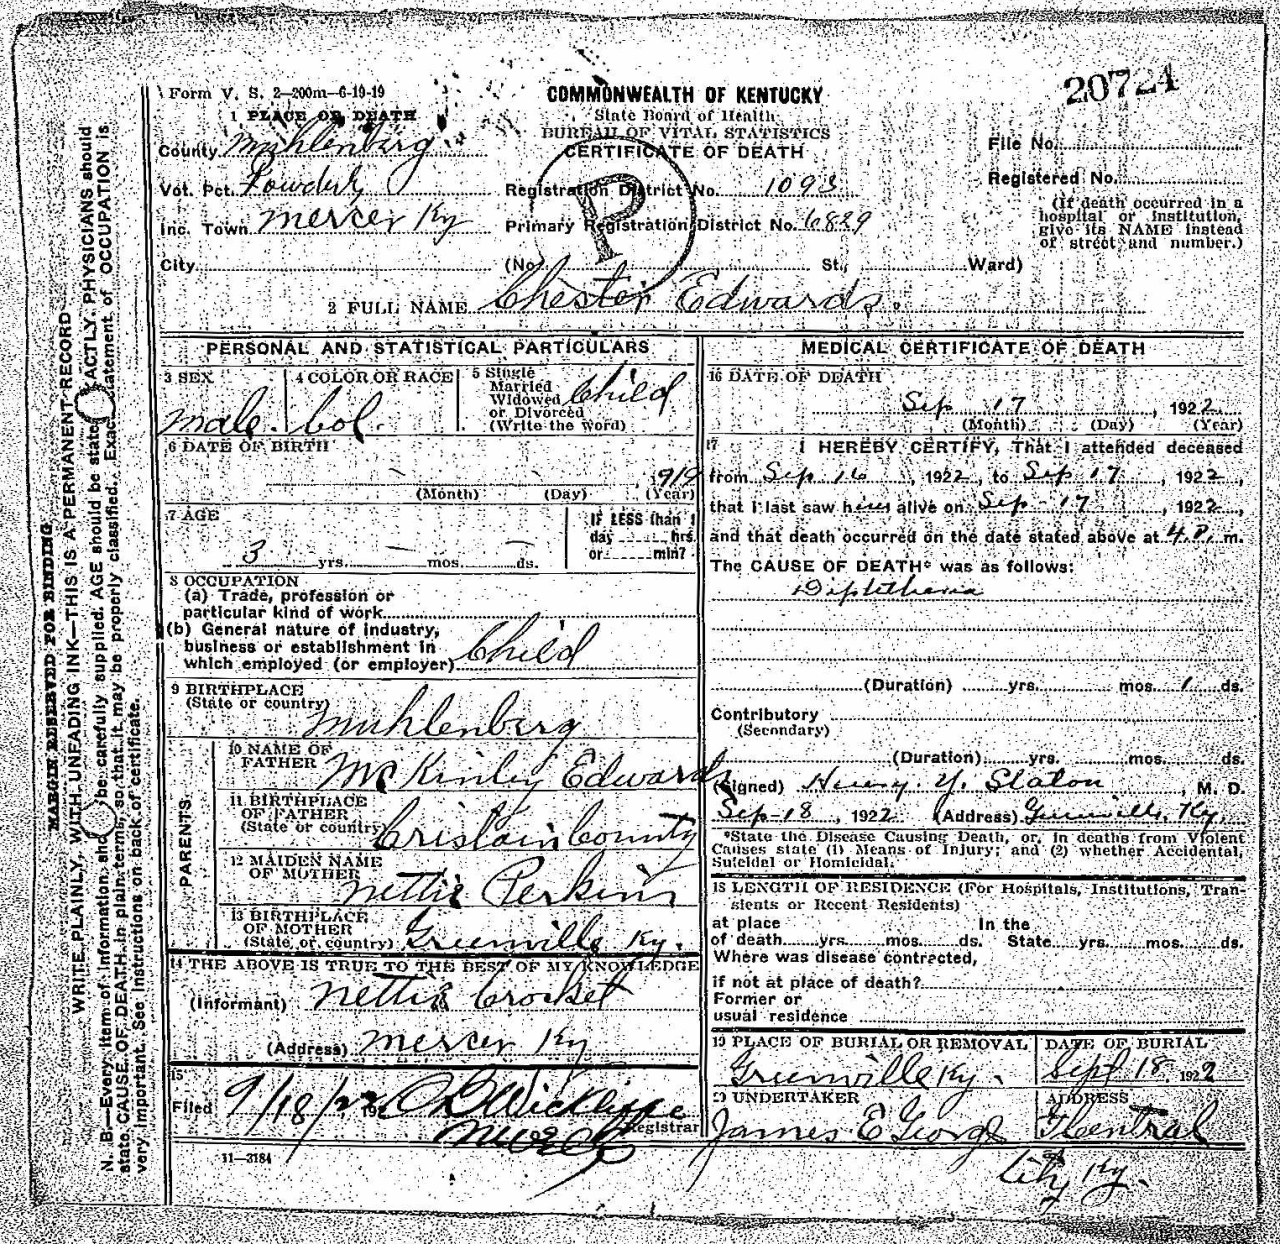 20724
Form V. S. 2—200m—6-19-19
COMMONWEALTH OF KENTUCKY
State Board of Health
BUREAU OF VITAL STATISTICS
CERTIFICATE OF DEATH
1 PLACE OF DEATH
County Muhlenberg
Vot. Pct. Powderly
Inc. Town Mercer Ky
City
P
Registration District No. 1093
Primary Registration District No. 6829
(No. St., Ward)
File No.
Registered No.
(If death occurred in a
hospital or institution,
give its NAME instead
of street and number.)
2 FULL NAME Chester Edwards
PERSONAL AND STATISTICAL PARTICULARS
3 SEX
male
4 COLOR OR RACE
Col.
5 Single
Married
Widowed
or Divorced
(Write the word)
Child
6 DATE OF BIRTH
— — , 1919
(Month) (Day) (Year)
7 AGE
3 yrs. — mos. — ds.
IF LESS than 1
day hrs.
or min?
8 OCCUPATION
(a) Trade, profession or
particular kind of work
(b) General nature of industry,
business or establishment in
which employed (or employer) Child
9 BIRTHPLACE
(State or country)
Muhlenberg
PARENTS
10 NAME OF
FATHER McKinley Edwards
11 BIRTHPLACE
OF FATHER
(State or country) Cristain County
12 MAIDEN NAME
OF MOTHER Nettie Perkins
13 BIRTHPLACE
OF MOTHER
(State or country) Greenville Ky.
14 THE ABOVE IS TRUE TO THE BEST OF MY KNOWLEDGE
(Informant) Nettie Crocket
(Address) Mercer Ky
15
Filed 9/18/22 192 Wickliffe
Registrar
11—3184
MEDICAL CERTIFICATE OF DEATH
16 DATE OF DEATH
Sep 17, 1922
(Month) (Day) (Year)
17 I HEREBY CERTIFY, That I attended deceased
from Sep 16, 1922, to Sep 17, 1922,
that I last saw him alive on Sep - 17, 1922,
and that death occurred on the date stated above at 4 P. m.
The CAUSE OF DEATH* was as follows:
Diptheria
(Duration) yrs. mos. 1 ds.
Contributory
(Secondary)
(Duration) yrs. mos. ds.
(Signed) Henry Y. Slaton, M. D.
Sep - 18, 1922 (Address) Greenville, Ky.
*State the Disease Causing Death, or, in deaths from Violent
Causes state (1) Means of Injury; and (2) whether Accidental,
Suicidal or Homicidal.
18 LENGTH OF RESIDENCE (For Hospitals, Institutions, Tran-
sients or Recent Residents)
at place In the
of death yrs. mos. ds. State yrs. mos. ds.
Where was disease contracted,
if not at place of death?
Former or
usual residence
19 PLACE OF BURIAL OR REMOVAL
Greenville Ky.
DATE OF BURIAL
Sept 18, 1922
20 UNDERTAKER
James E George
ADDRESS
Central
City Ky.
MARGIN RESERVED FOR BINDING
WRITE PLAINLY, WITH UNFADING INK—THIS IS A PERMANENT RECORD
N. B.—Every item of information should be carefully supplied. AGE should be stated EXACTLY. PHYSICIANS should
state CAUSE OF DEATH in plain terms, so that it may be properly classified. Exact statement of OCCUPATION is
very important. See instructions on back of certificate.